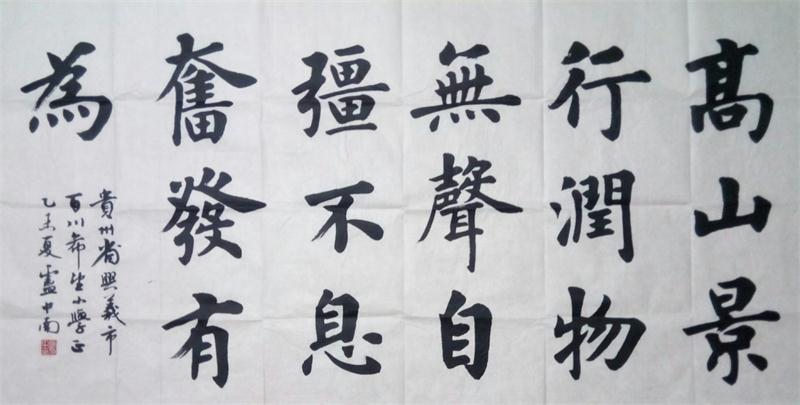 高山景
行潤物
無聲自
彊不息
奮發有
為
貴州省興義市
百川希望小學正
乙未夏盧中南